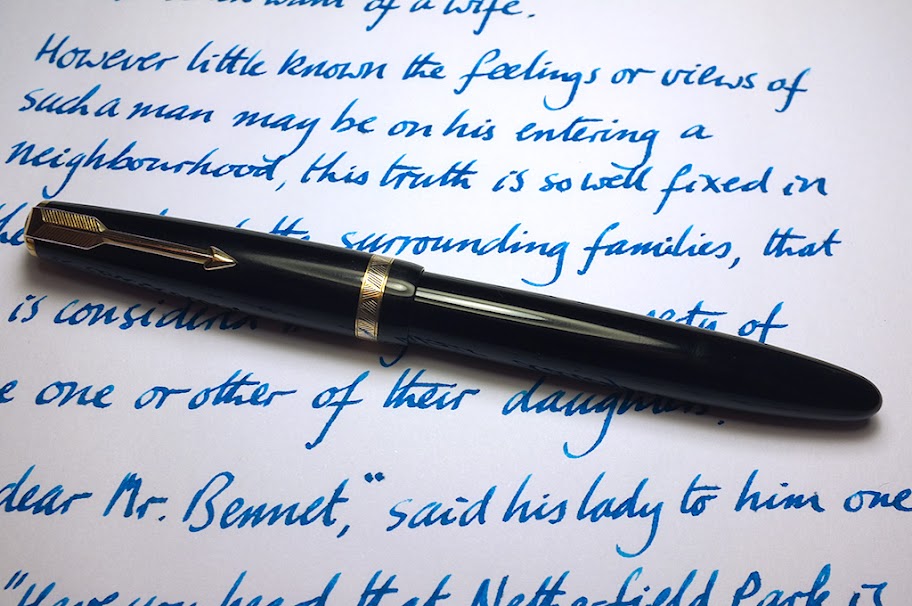 want of a wife.
However little known the feelings or views of
such a man may be on his entering a
neighbourhood, this truth is so well fixed in
surrounding families, that
is considered of
one or other of their daughters.
dear Mr. Bennet," said his lady to him one
"Have you heard that Netherfield Park is